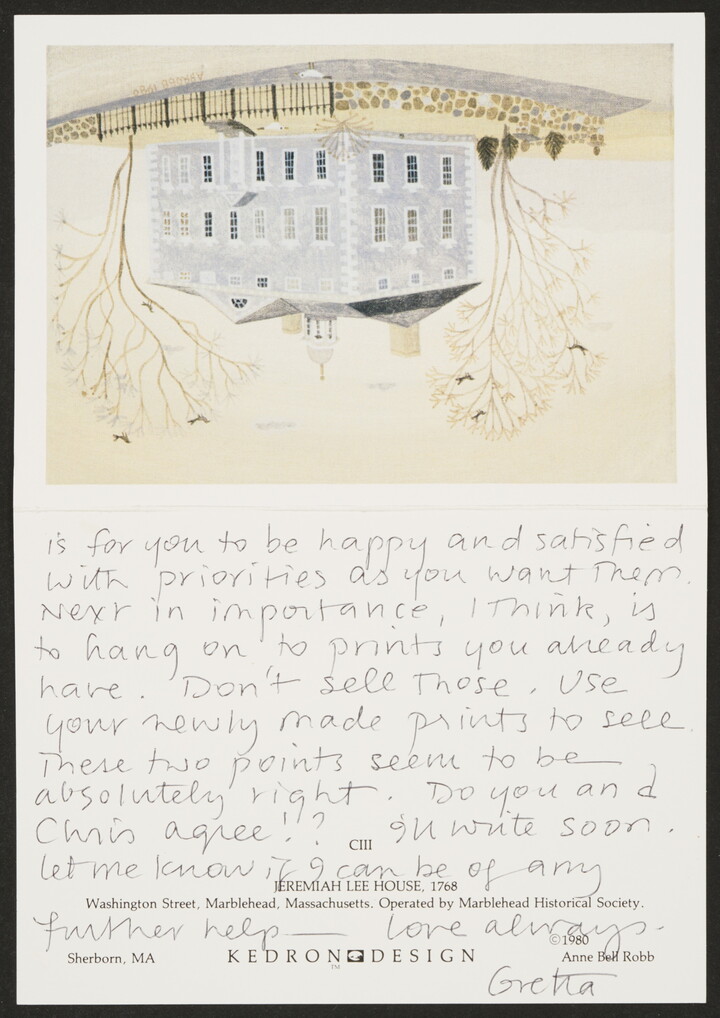 is for you to be happy and satisfied
with priorities as you want them.
Next in importance, I think, is
to hang on to prints you already
have. Don't sell those. Use
your newly made prints to sell.
These two points seem to be
absolutely right. Do you and
Chris agree!? I'll write soon.
CIII
let me know if I can be of any
JEREMIAH LEE HOUSE, 1768
Washington Street, Marblehead, Massachusetts. Operated by Marblehead Historical Society.
further help — love always.
©1980
Sherborn, MA KEDRON DESIGN Anne Bell Robb
TM
Gretta